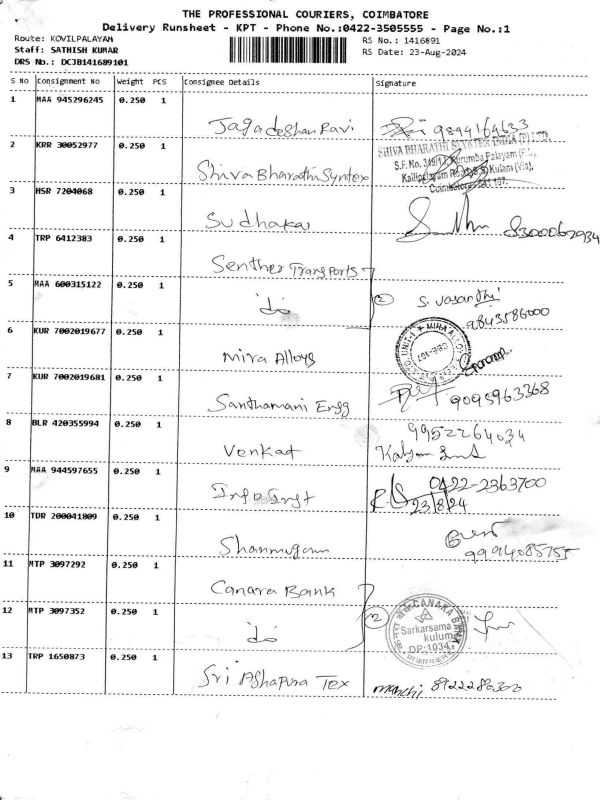 THE PROFESSIONAL COURIERS, COIMBATORE
Delivery Runsheet - KPT - Phone No.:0422-3505555 - Page No.:1
Route: KOVILPALAYAM
RS No.: 1416891
Staff: SATHISH KUMAR
RS Date: 23-Aug-2024
DRS No.: DCJB141689101
S No Consignment No Weight PCS Consignee Details Signature
1 MAA 945296245 0.250 1 Jagadeshan Ravi 9894164633
2 KRR 30052977 0.250 1 Shiva Bharathi Syntex
SHIVA BHARATHI SYNTEX INDIA (P) LTD.
S.F. No. 349/1, Kurumba Palayam
Kulam (Via),
3 HSR 7204068 0.250 1 Sudhakar 8300062934
4 TRP 6412383 0.250 1 Senther Transports
5 MAA 600315122 0.250 1 do 2 S. Vasanthi
9843586000
6 KUR 7002019677 0.250 1 Mira Alloys
MIRA ALLOYS
7 KUR 7002019681 0.250 1 Santhamani Engg 9095963368
8 BLR 420355994 0.250 1 Venkat 9952264034
9 MAA 944597655 0.250 1 Info Inst 0422-2363700
23/8/24
10 TDR 200041809 0.250 1 Shanmugam
11 MTP 3097292 0.250 1 Canara Bank
12 MTP 3097352 0.250 1 do 2
CANARA BANK
Sarkarsama
kulum
DP:1034
13 TRP 1650873 0.250 1 Sri Ashapura Tex